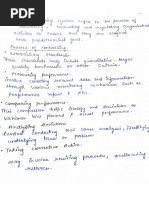 System refers to the process of
and regulating Organisational
activities to ensure that they are
with predetermined goal.
Process of controlling.
Establishing Standards -
These standards may include quantitative targets
quality benchmarks or other criteria.
• Measuring performance.
involves collecting relevant data and information
through various monitoring mechanism such as
performance report &
• Comparing performance -
This comparison helps identify and deviation or
variances b/w planned & actual performance.
• Analysing deviation -
involved conducting root cause analysis, identifying
underlying issues or problem.
• Taking corrective Action -
may involve revising process, reallocating
resources.